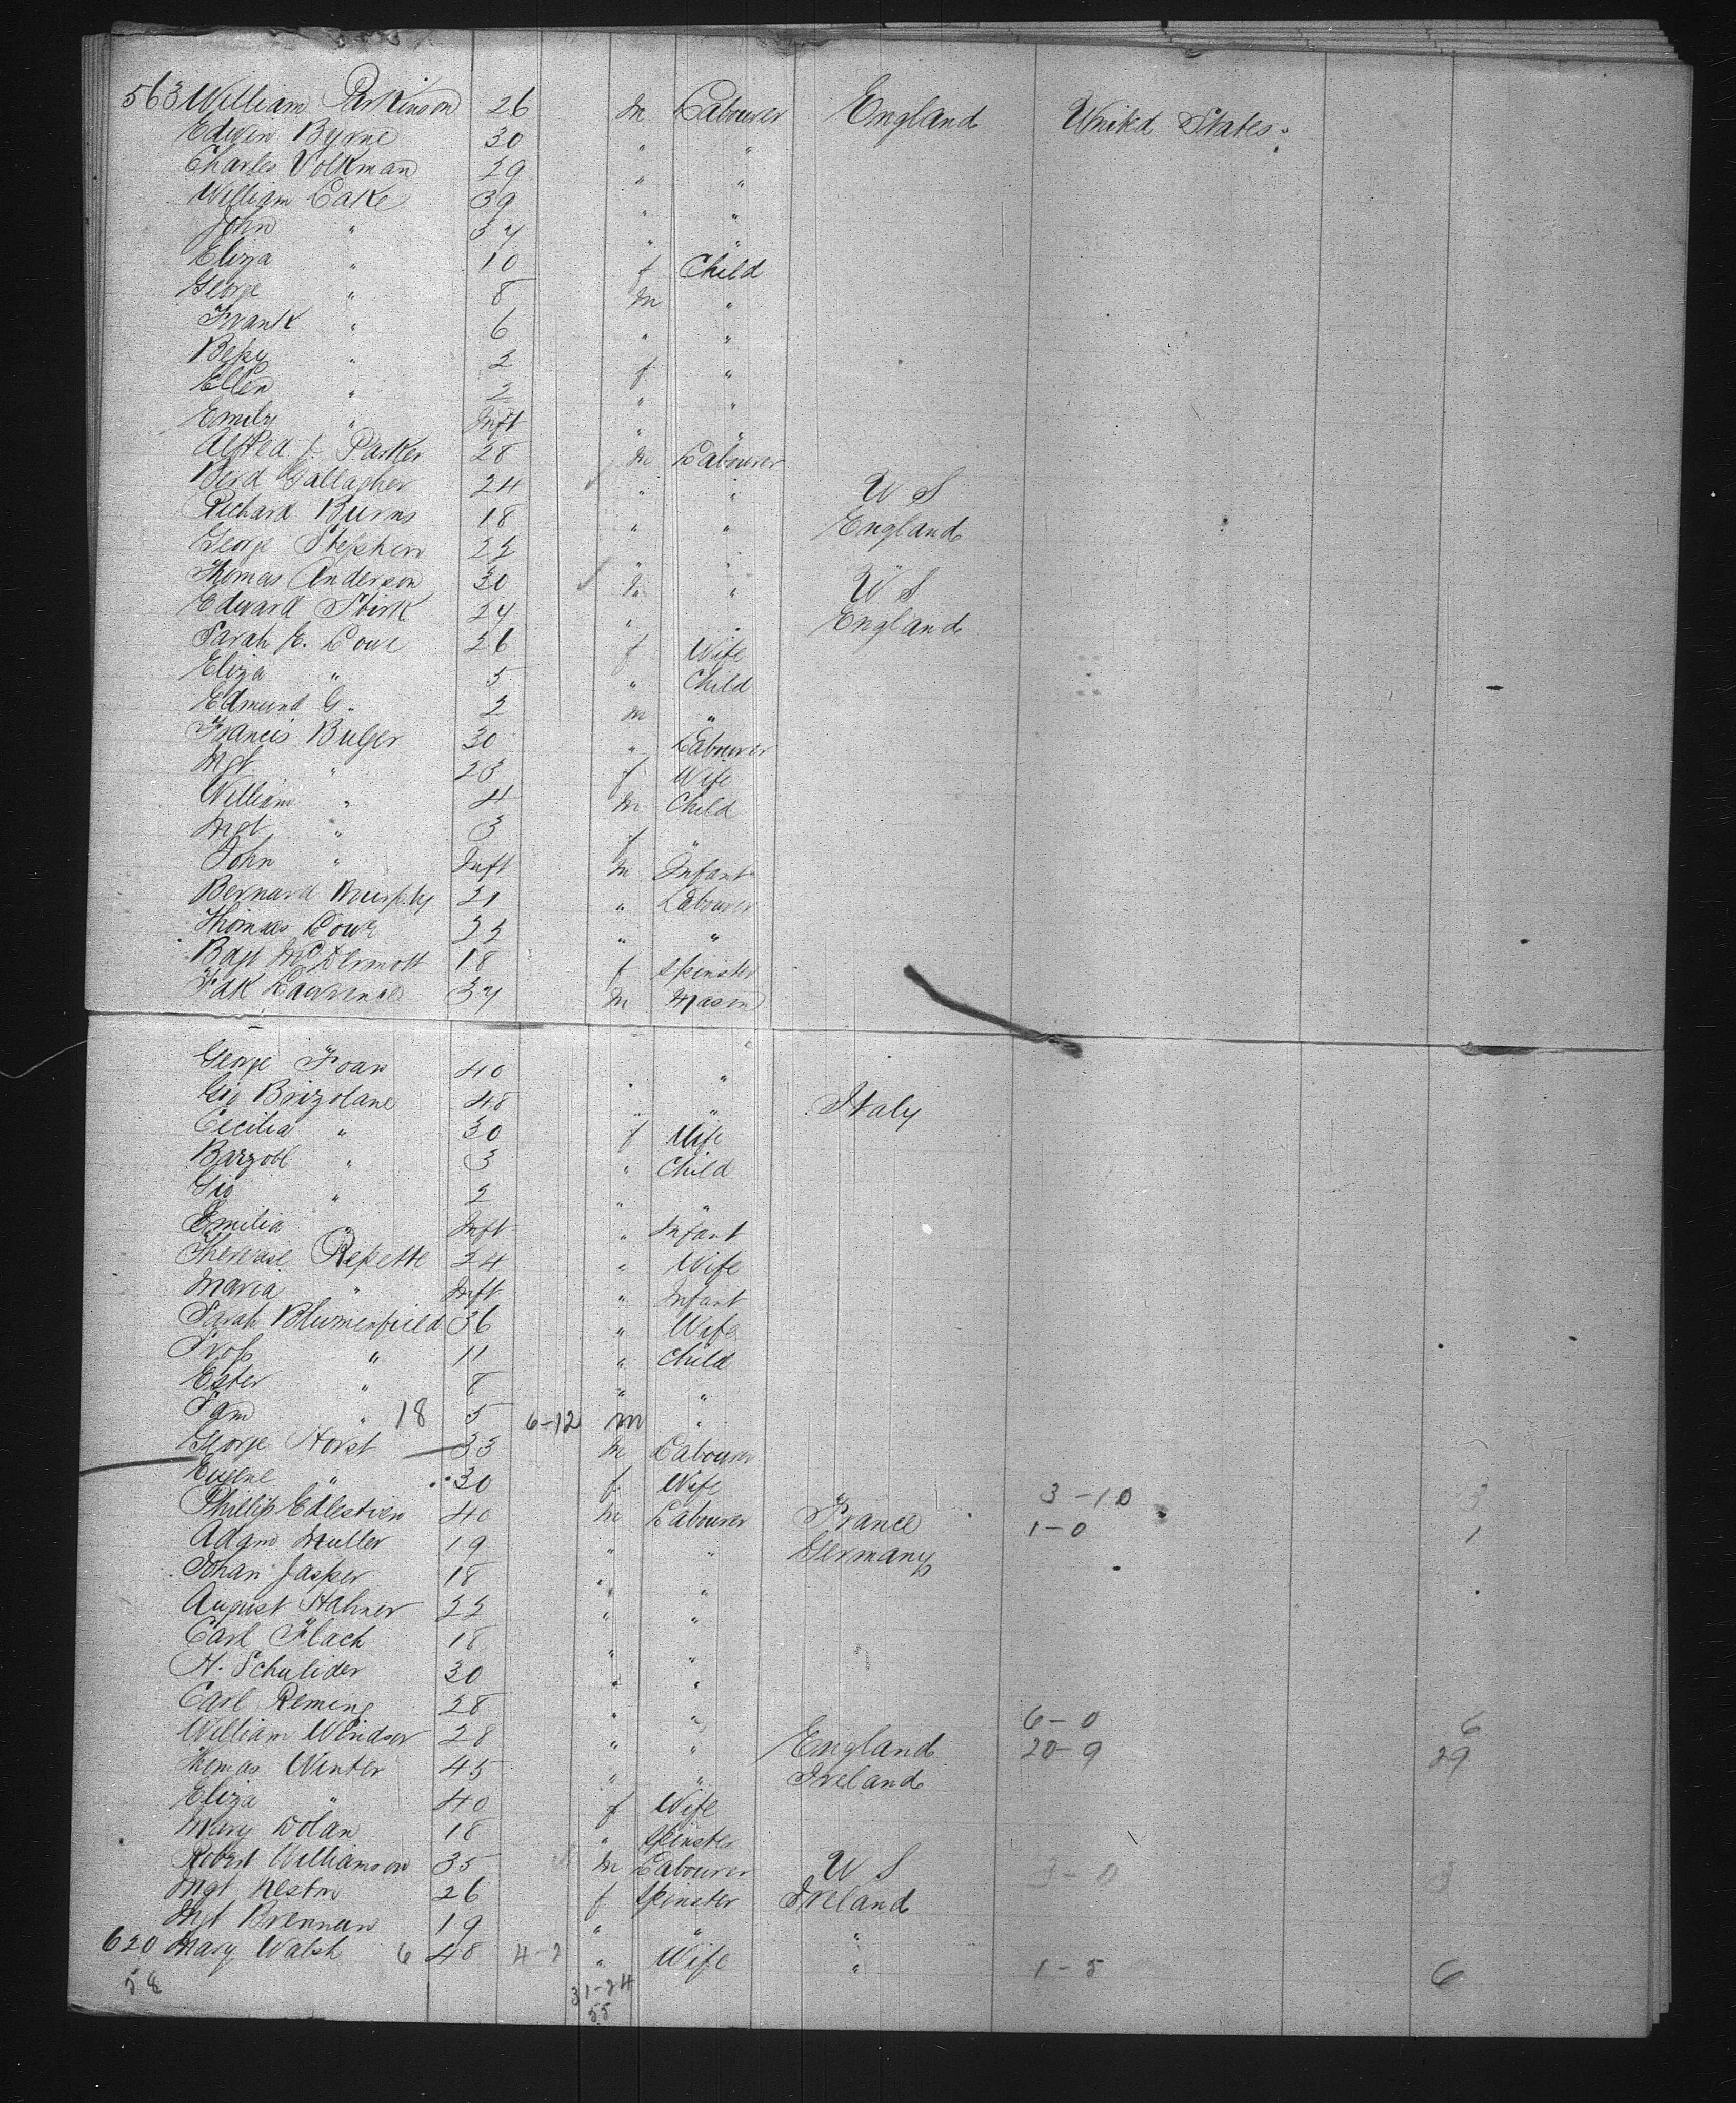 563 William Parkinson 26 m Labourer England United States
Edwin Byrne 30 " "
Charles Volkman 29 " "
William Lake 39 " "
John " 37 " "
Eliza " 10 f Child
George " 8 m "
Frank " 6 " "
Beſsy " 2 f "
Ellen " 2 " "
Emily " Inft " "
Alfred J. Parker 28 m Labourer
Berd Gallagher 24 " " U S
Richard Burns 18 " " England
George Stephen 22 " "
Thomas Anderson 30 m " U S
Edward Stirk 27 " " England
Sarah E. Lowe 26 f Wife
Eliza " 5 " Child
Edmund G. 2 m "
Francis Bulger 30 " Labourer
Mgt " 23 f Wife
William " 4 m Child
Mgt " 3 f "
John " Inft m Infant
Bernard Murphy 21 " Labourer
Thomas Lowe 22 " "
Bdgt McDermott 18 f Spinster
Pak Lawrence 37 m Mason
George Foan 40 " "
Gio Brizolane 48 " " Italy
Cecilia " 30 f Wife
Barzobl " 3 " Child
Gio " 2 " "
Emilia " Inft " Infant
Therease Repette 24 " Wife
Maria " Inft " Infant
Sarah Blumenfield 36 " Wife
" 11 " Child
Ester " 8 " "
Sam " 18 5 6-12 m "
George Horst 33 m Labourer
Eugene " 30 f Wife 3-10 3
Phillip Edlestien 40 m Labourer France 1-0 1
Adam Muller 19 " " Germany
Johan Jasper 18 " "
August Hahner 22 " "
Carl Flach 18 " "
H. Schulider 30 " "
Carl Reming 28 " " 6-0 6
William Windsor 28 " " England 20-9 29
Thomas Winter 45 " " Ireland
Eliza " 40 f Wife
Mary Dolan 18 " Spinster
Robert Williamson 35 m Labourer U S 3-0 3
Mgt Neston 26 f Spinster Ireland
Mgt Brennan 19 " " "
620 Mary Walsh 6 48 4-2 " Wife " 1-5 6
58 31-24
55